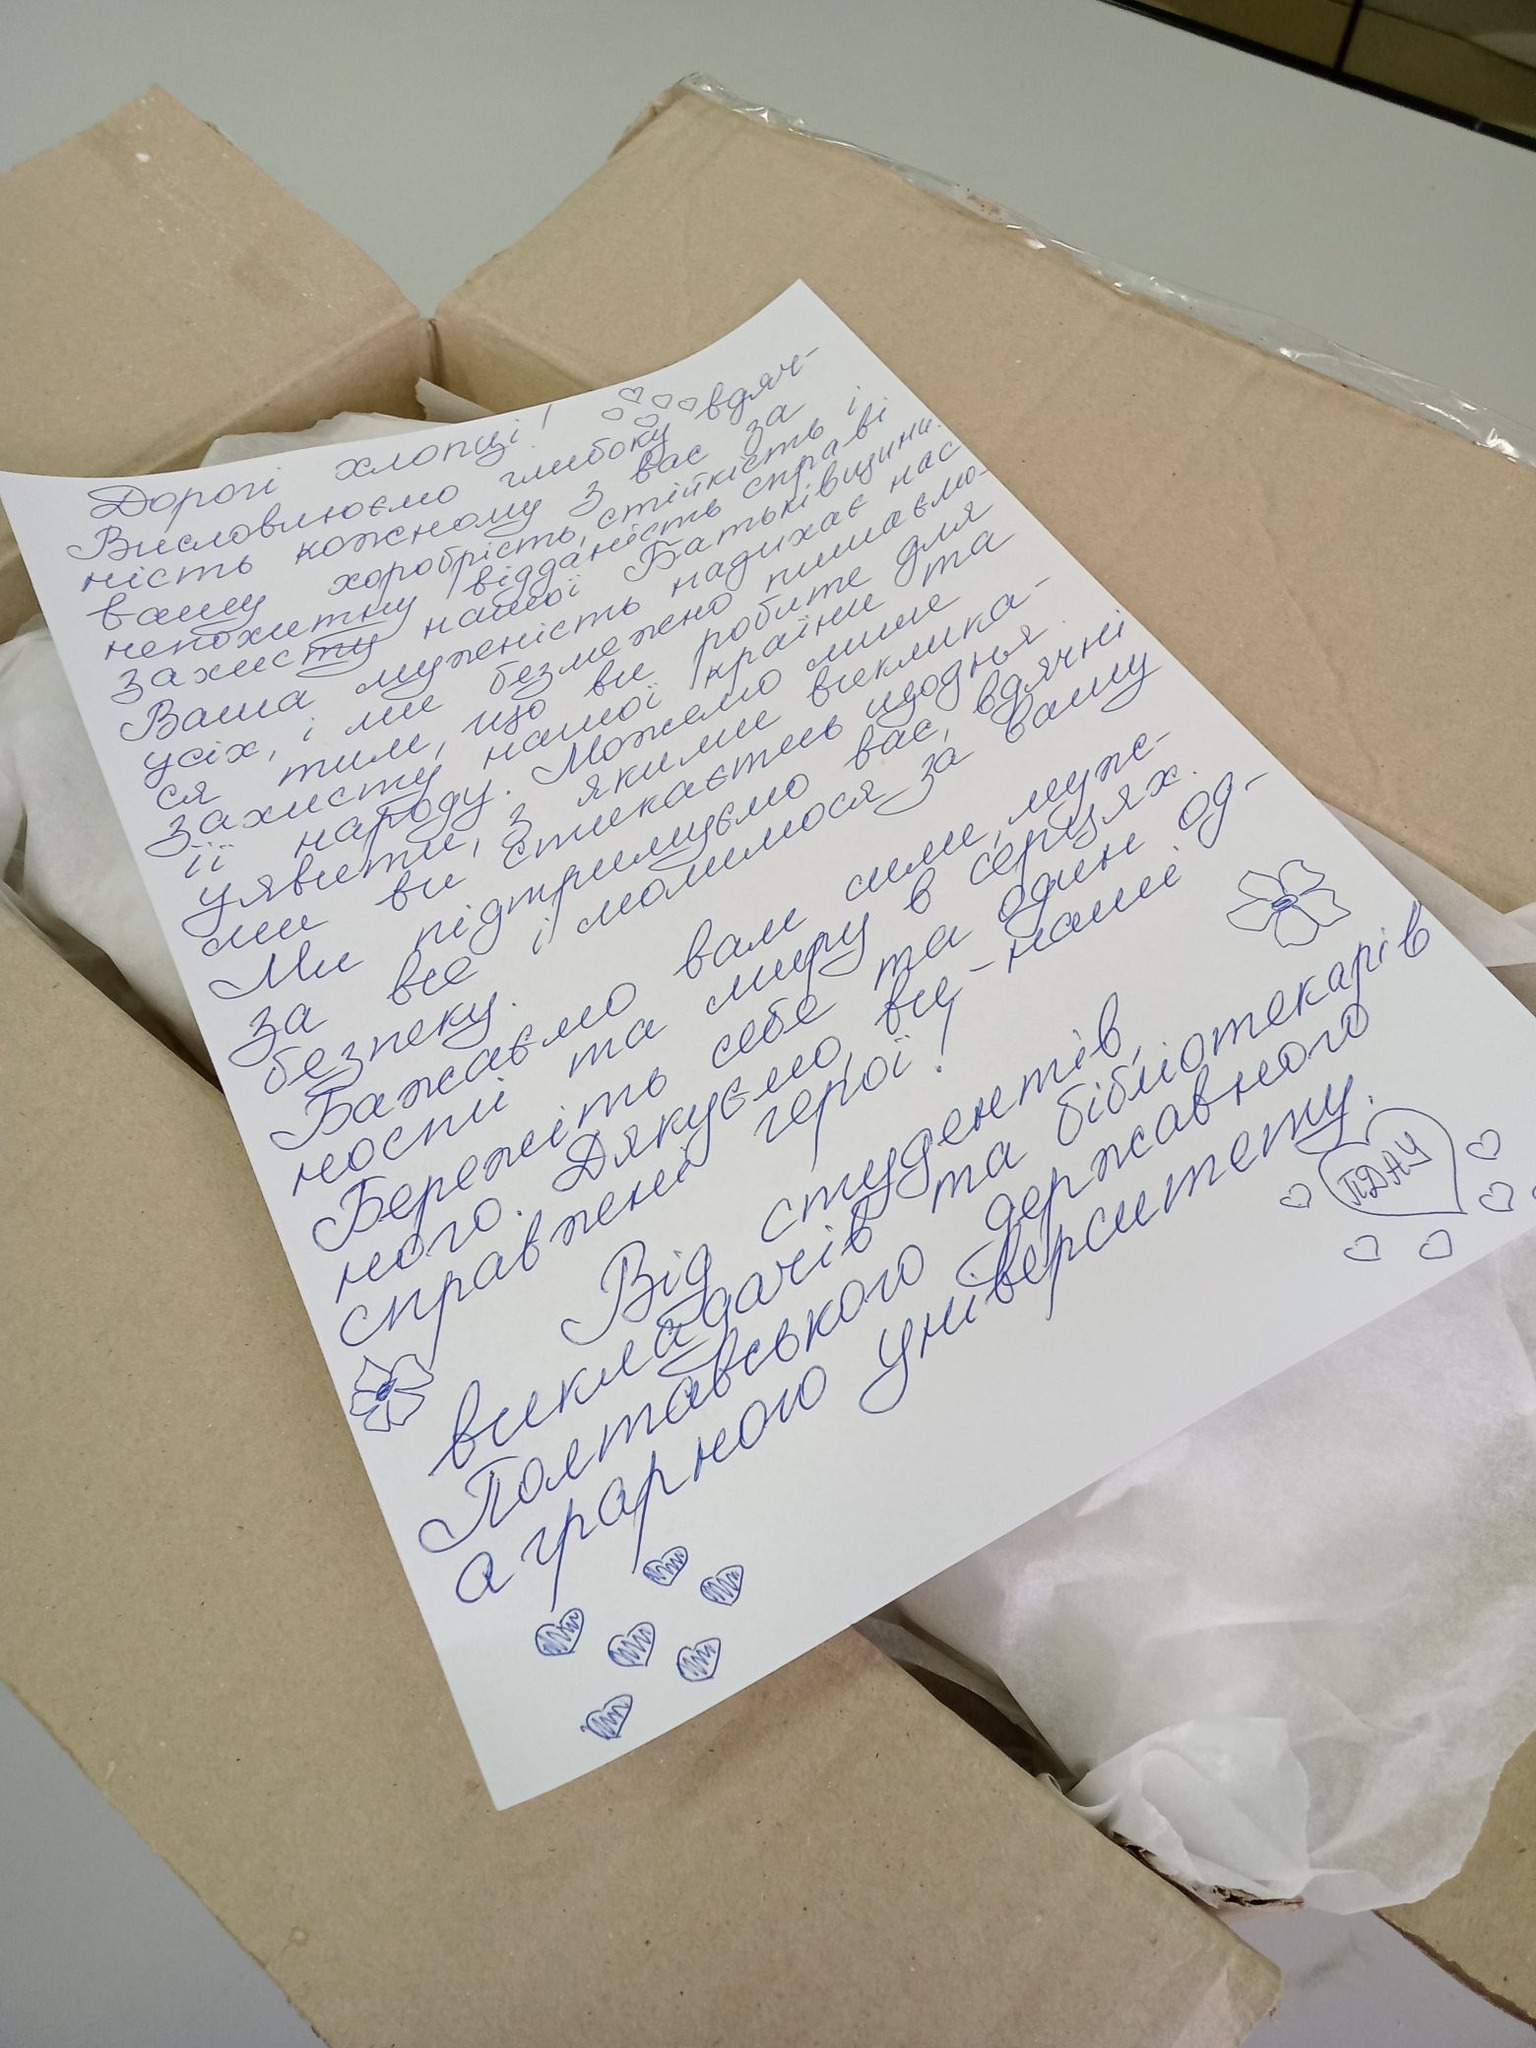 Дорогі хлопці!
Висловлюємо глибоку вдяч-
ність кожному з вас за
вашу хоробрість, стійкість і
непохитну відданість справі
захисту нашої Батьківщини.
Ваша мужність надихає нас
усіх, і ми безмежно пишаємо-
ся тим, що ви робите для
захисту нашої країни та
її народу. Можемо лише
уявити, з якими виклика-
ми ви стикаєтесь щодня.
Ми підтримуємо вас, вдячні
за все і молимося за вашу
безпеку.
Бажаємо вам сили, муж-
ності та миру в серцях.
Бережіть себе та один од-
ного. Дякуємо, ви - наші
справжні герої!
Від студентів,
викладачів та бібліотекарів
Полтавського державного
аграрного університету.
ПДАУ